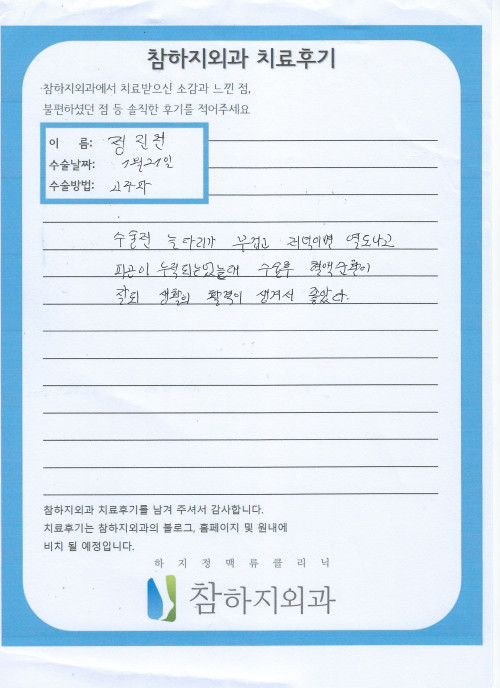 참하지외과 치료후기
참하지외과에서 치료받으신 소감과 느낀 점,
불편하셨던 점 등 솔직한 후기를 적어주세요
이 름: 정진권
수술날짜: 1월21일
수술방법: 고주파
수술전 늘 다리가 무겁고 저녁이면 열도나고
피곤이 누적되는있는데 수술후 혈액순환이
잘되 생활의 활력이 생겨서 좋았다.
참하지외과 치료후기를 남겨 주셔서 감사합니다.
치료후기는 참하지외과의 블로그, 홈페이지 및 원내에
비치 될 예정입니다.
하지정맥류클리닉
참하지외과